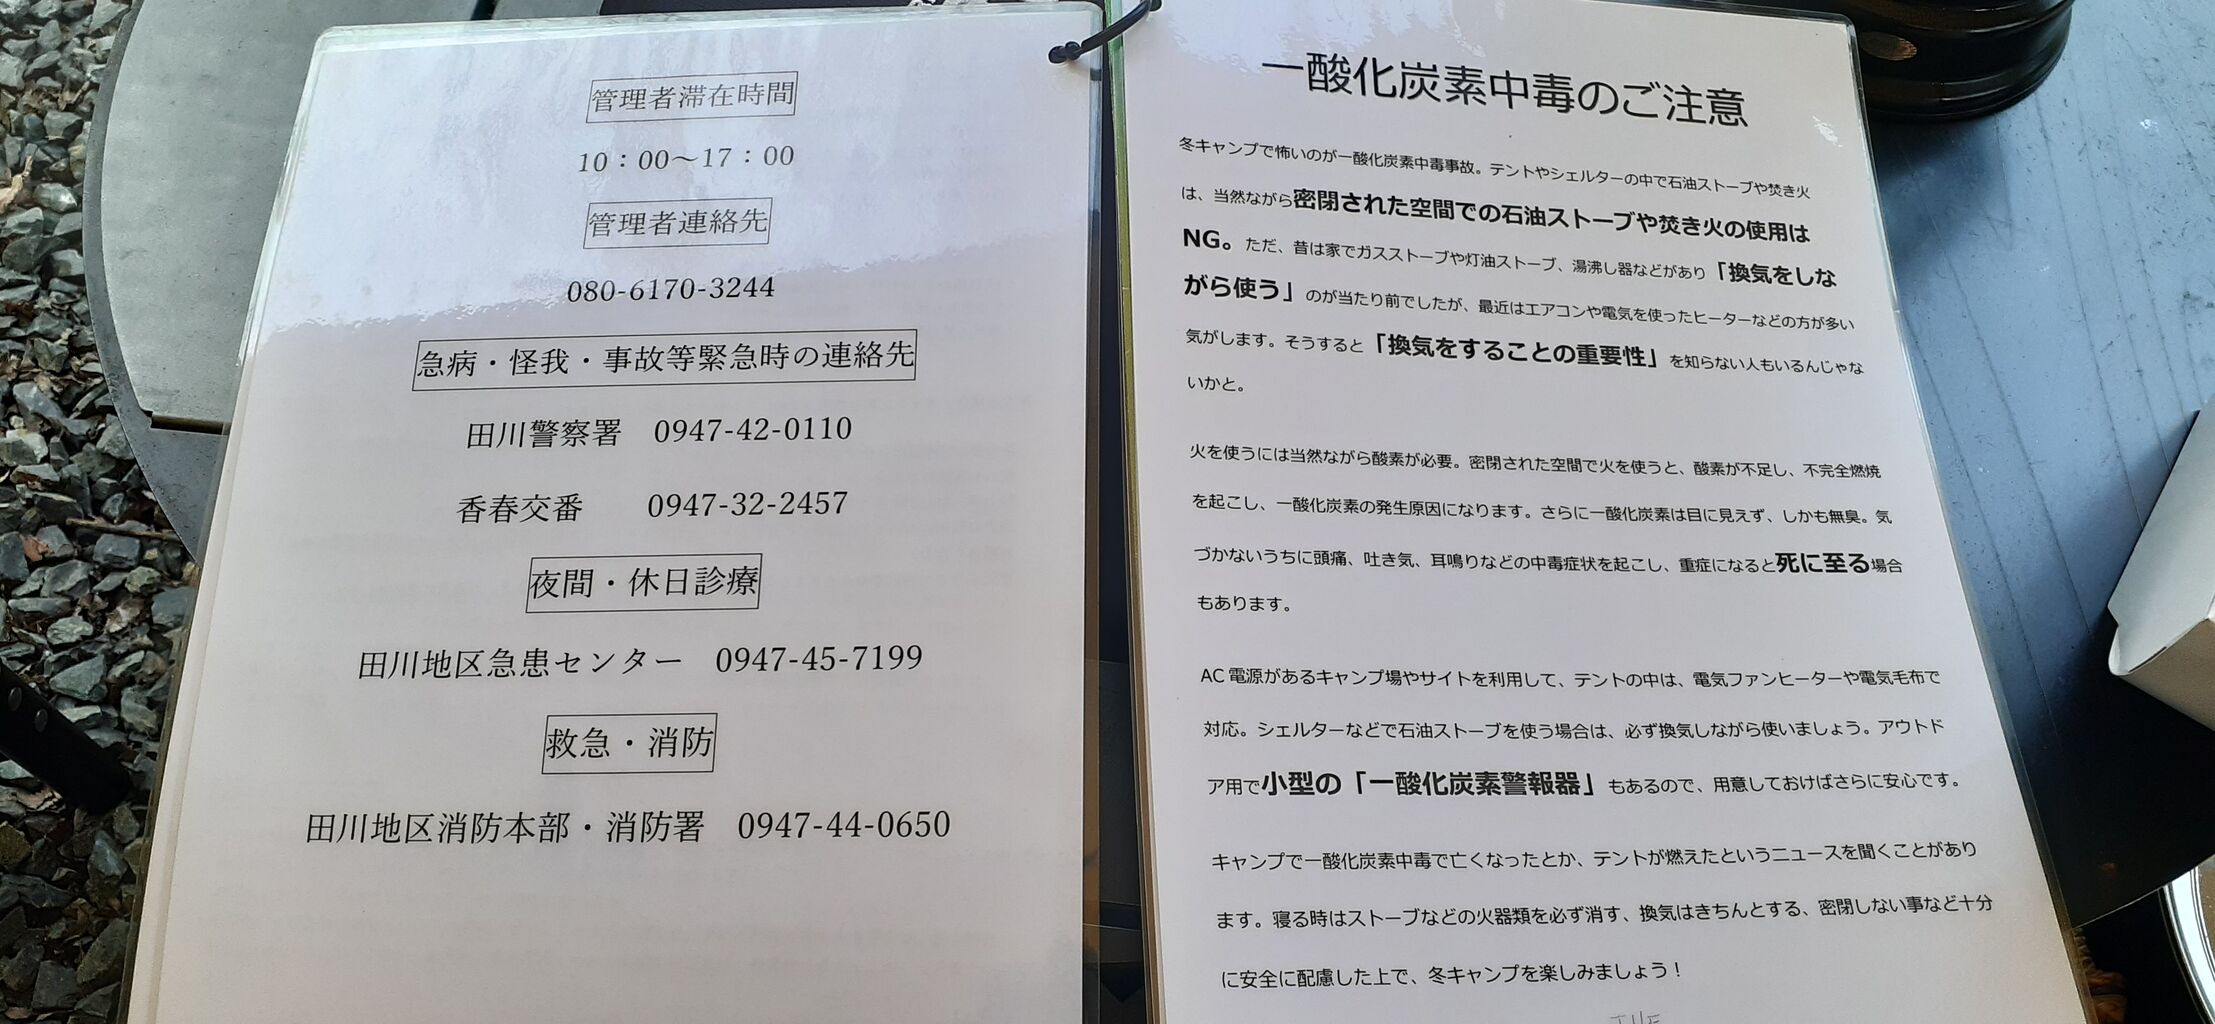 管理者滞在時間
10：00～17：00
管理者連絡先
080-6170-3244
急病・怪我・事故等緊急時の連絡先
田川警察署　0947-42-0110
香春交番　　0947-32-2457
夜間・休日診療
田川地区急患センター　0947-45-7199
救急・消防
田川地区消防本部・消防署　0947-44-0650
一酸化炭素中毒のご注意
冬キャンプで怖いのが一酸化炭素中毒事故。テントやシェルターの中で石油ストーブや焚き火
は、当然ながら密閉された空間での石油ストーブや焚き火の使用は
NG。ただ、昔は家でガスストーブや灯油ストーブ、湯沸し器などがあり「換気をしな
がら使う」のが当たり前でしたが、最近はエアコンや電気を使ったヒーターなどの方が多い
気がします。そうすると「換気をすることの重要性」を知らない人もいるんじゃな
いかと。
火を使うには当然ながら酸素が必要。密閉された空間で火を使うと、酸素が不足し、不完全燃焼
を起こし、一酸化炭素の発生原因になります。さらに一酸化炭素は目に見えず、しかも無臭。気
づかないうちに頭痛、吐き気、耳鳴りなどの中毒症状を起こし、重症になると死に至る場合
もあります。
AC 電源があるキャンプ場やサイトを利用して、テントの中は、電気ファンヒーターや電気毛布で
対応。シェルターなどで石油ストーブを使う場合は、必ず換気しながら使いましょう。アウトド
ア用で小型の「一酸化炭素警報器」もあるので、用意しておけばさらに安心です。
キャンプで一酸化炭素中毒で亡くなったとか、テントが燃えたというニュースを聞くことがあり
ます。寝る時はストーブなどの火器類を必ず消す、換気はきちんとする、密閉しない事など十分
に安全に配慮した上で、冬キャンプを楽しみましょう！